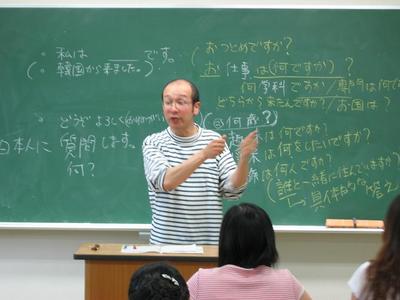 ・私は＿＿＿です。
(・韓国から来ました。)
・どうぞよろしく
日本人に 質問します。
何?
(おつとめですか?
お仕事は(何ですか)?
何学科ですか/専門は何で
どちらから来たんですか?/お国は?
(何歳?)
は何ですか?
は何をしたいですか?
は何人ですか?
(誰と一緒に住んでいますか?
→具体的な答え